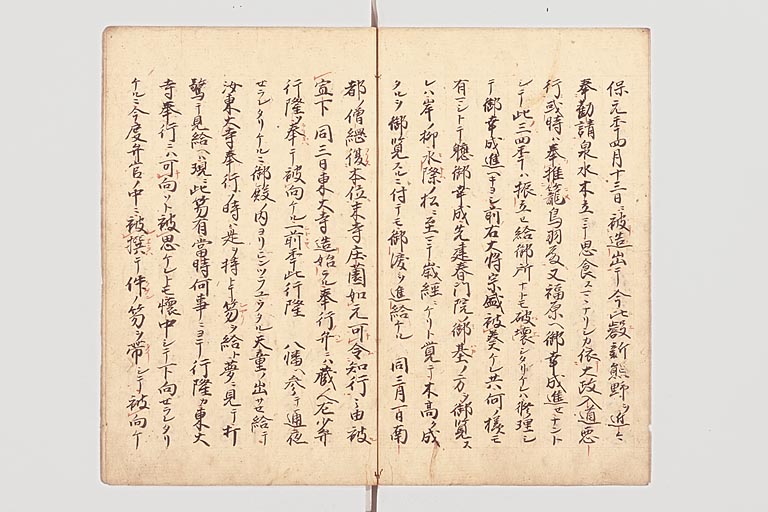 保元々年四月十三日ニ被造出テ今比叡新熊野ヲ近々ニ
奉勧請泉水木立ニ至マテ思食スマヽナリシカ依大政入道悪
行或時ハ奉推籠鳥羽殿又福原ヘ御幸成進セナント
シテ此三四年ハ振立セ給御所ナトモ破壊シタリケレハ修理シ
テ御幸成進スヘキヨシ前右大将宗盛被奏ケレ共何ノ様モ
有ヘシトテ軈御幸成先建春門院ノ御墓ノ方ヲ御覧ス
レハ岸ノ柳水際ノ松ニ至マテ歳経ニケリト覚テ木高ク成
タルヲ御覧スルニ付テモ御涙ソ進給ケル 同三月一日南
都ノ僧綱復本位末寺庄薗如元可令知行之由被
宣下 同三日東大寺造始ラル奉行弁ニハ蔵人左少弁
行隆ヲ奉テ被向ケル前年此行隆 八幡ヘ参テ通夜
セラレタリケルニ御殿ノ内ヨリヒンツラユウタル天童ノ出サセ給テ
汝東大寺奉行ノ時ハ是ヲ持ヨトテ笏ヲ給ト夢ニ見テ打
驚テ見給ヘハ現ニ此笏有當時何事ニヨテ行隆カ東大
寺奉行ニハ可向ソト被思ケレトモ懐中シテ下向セラレタリ
ケルニ今度弁官ノ中ニ被撰テ件ノ笏ヲ帯シテ被向ケ